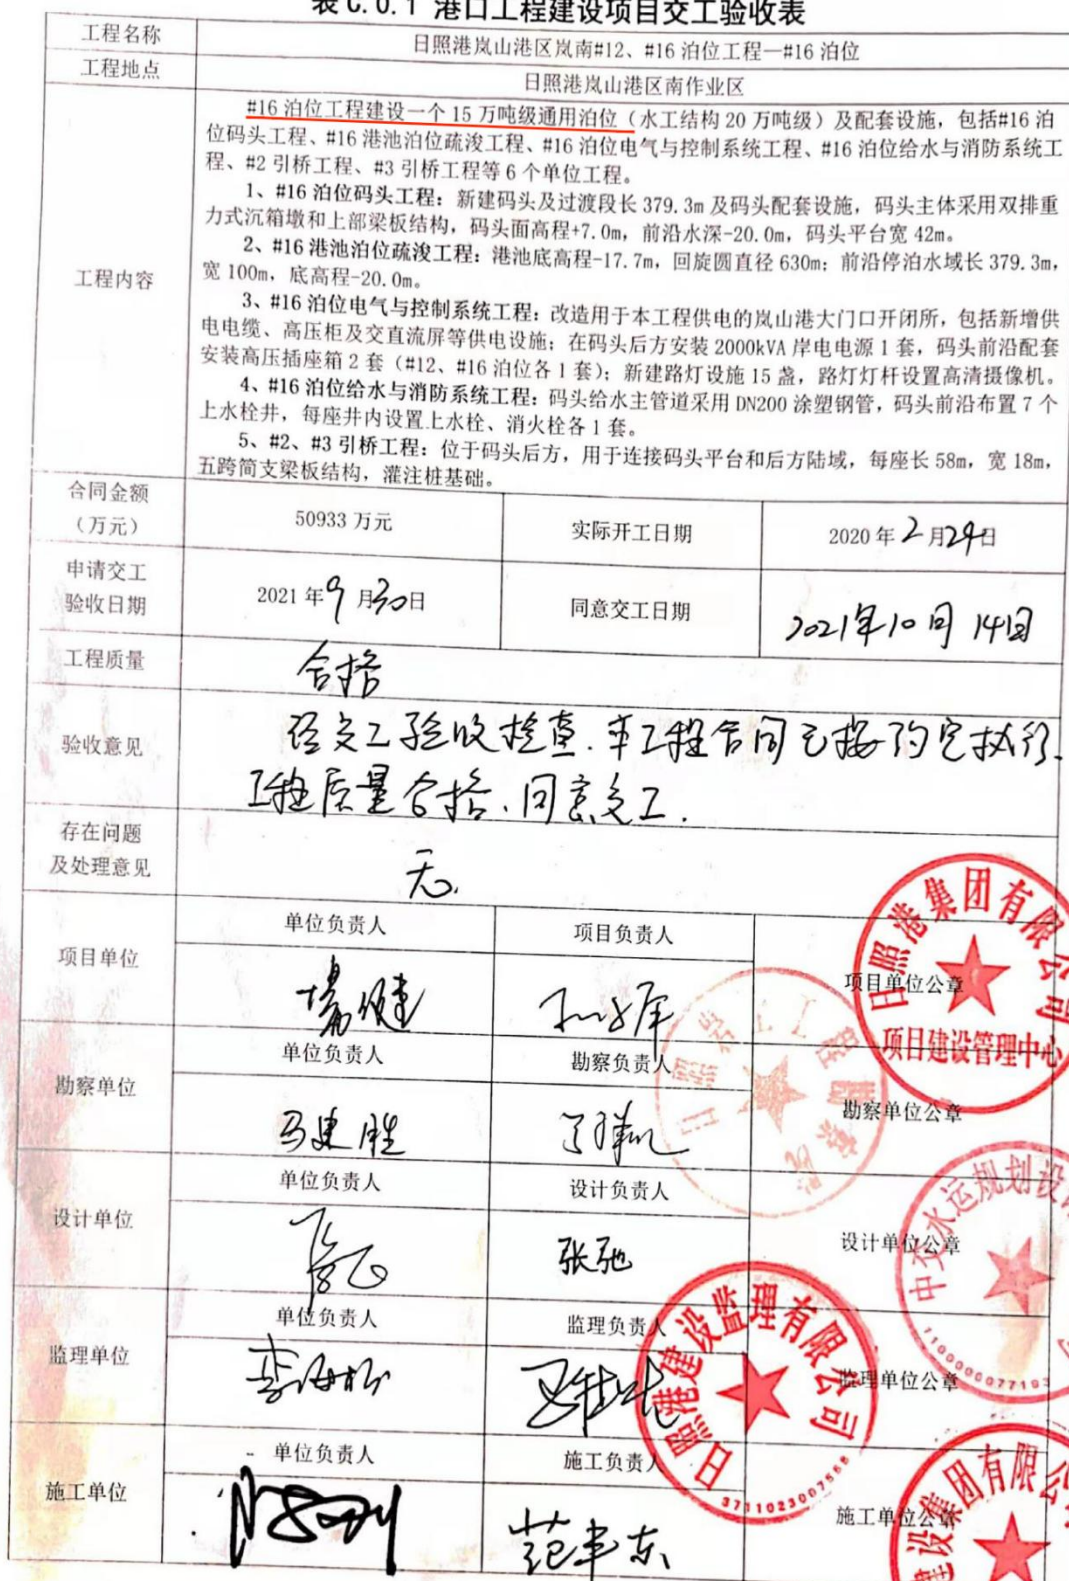 表 C.0.1 港口工程建设项目交工验收表
工程名称
日照港岚山港区岚南#12、#16 泊位工程—#16 泊位
工程地点
日照港岚山港区南作业区
工程内容
#16 泊位工程建设一个 15 万吨级通用泊位（水工结构 20 万吨级）及配套设施，包括#16 泊
位码头工程、#16 港池泊位疏浚工程、#16 泊位电气与控制系统工程、#16 泊位给水与消防系统工
程、#2 引桥工程、#3 引桥工程等 6 个单位工程。
1、#16 泊位码头工程：新建码头及过渡段长 379.3m 及码头配套设施，码头主体采用双排重
力式沉箱墩和上部梁板结构，码头面高程+7.0m，前沿水深-20.0m，码头平台宽 42m。
2、#16 港池泊位疏浚工程：港池底高程-17.7m，回旋圆直径 630m；前沿停泊水域长 379.3m，
宽 100m，底高程-20.0m。
3、#16 泊位电气与控制系统工程：改造用于本工程供电的岚山港大门口开闭所，包括新增供
电电缆、高压柜及交直流屏等供电设施；在码头后方安装 2000kVA 岸电电源 1 套，码头前沿配套
安装高压插座箱 2 套（#12、#16 泊位各 1 套）；新建路灯设施 15 盏，路灯灯杆设置高清摄像机。
4、#16 泊位给水与消防系统工程：码头给水主管道采用 DN200 涂塑钢管，码头前沿布置 7 个
上水栓井，每座井内设置上水栓、消火栓各 1 套。
5、#2、#3 引桥工程：位于码头后方，用于连接码头平台和后方陆域，每座长 58m，宽 18m，
五跨简支梁板结构，灌注桩基础。
合同金额
（万元）
50933 万元
实际开工日期
2020 年 2 月 24 日
申请交工
验收日期
2021 年 9 月 30 日
同意交工日期
2021年10月14日
工程质量
合格
验收意见
经交工验收检查.本工程合同已按约定执行.
工程质量合格、同意交工.
存在问题
及处理意见
无.
项目单位
单位负责人
项目负责人
项目单位公章
日照港集团有限公司
项目建设管理中心
勘察单位
单位负责人
勘察负责人
勘察单位公章
马建胜
设计单位
单位负责人
设计负责人
设计单位公章
张驰
中交水运规划设
1100000077193
监理单位
单位负责人
监理负责人
监理单位公章
李海松
日照港建设监理有限公司
3711023007568
施工单位
单位负责人
施工负责人
施工单位公章
范丰东
建设集团有限公